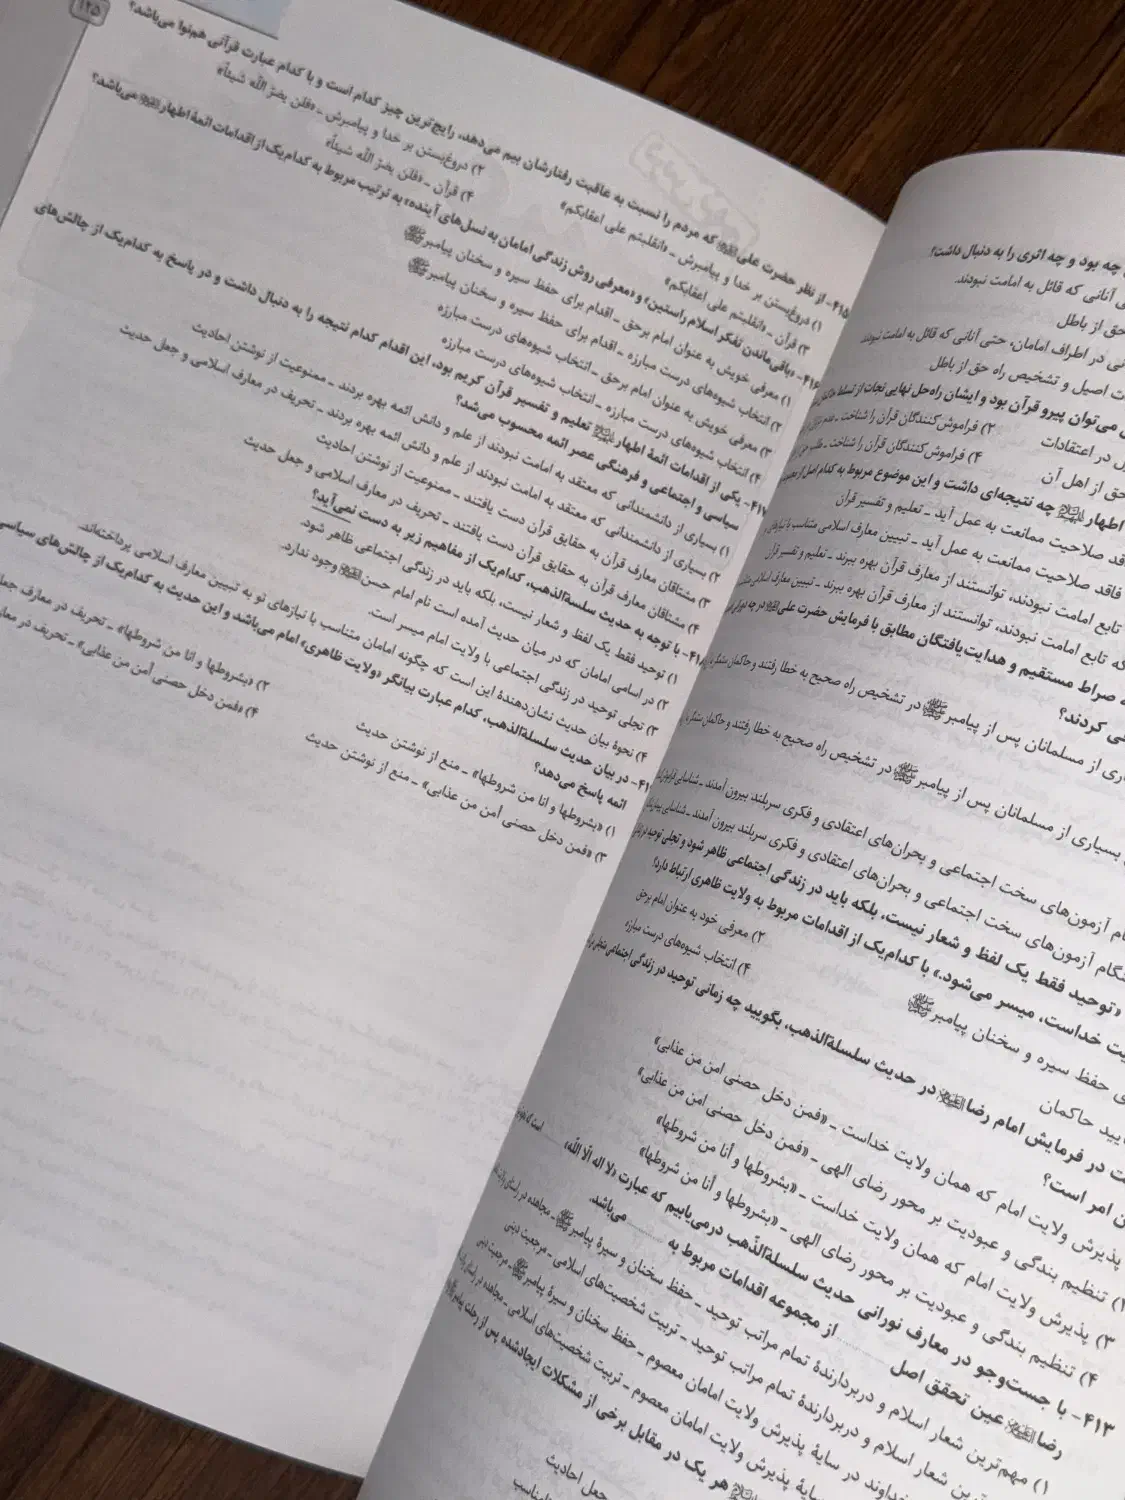 ۱۲۵
۴۱۵- از نظر حضرت علی که مردم را نسبت به عاقبت رفتارشان بیم می‌دهد، رایج‌ترین چیز کدام است و با کدام عبارت قرآنی هم‌نوا می‌باشد؟
۱) دروغ‌بستن بر خدا و پیامبرش ـ «انقلبتم علی اعقابکم» ۲) دروغ‌بستن بر خدا و پیامبرش ـ «فلن یضرّ الله شیئاً»
۳) قرآن ـ «انقلبتم علی اعقابکم» ۴) قرآن ـ «فلن یضرّ الله شیئاً»
۴۱۶- «باقی‌ماندن تفکر اسلام راستین» و «معرفی روش زندگی امامان به نسل‌های آینده» به ترتیب مربوط به کدام‌یک از اقدامات ائمۀ اطهار می‌باشد؟
۱) معرفی خویش به عنوان امام بر‌حق ـ اقدام برای حفظ سیره و سخنان پیامبر
۲) انتخاب شیوه‌های درست مبارزه ـ اقدام برای حفظ سیره و سخنان پیامبر
۳) معرفی خویش به عنوان امام بر‌حق ـ انتخاب شیوه‌های درست مبارزه
۴) انتخاب شیوه‌های درست مبارزه ـ انتخاب شیوه‌های درست مبارزه
۴۱۷- یکی از اقدامات ائمۀ اطهار تعلیم و تفسیر قرآن کریم بود، این اقدام کدام نتیجه را به دنبال داشت و در پاسخ به کدام‌یک از چالش‌های
سیاسی و اجتماعی و فرهنگی عصر ائمه محسوب می‌شد؟
۱) بسیاری از دانشمندانی که معتقد به امامت نبودند از علم و دانش ائمه بهره بردند ـ ممنوعیت از نوشتن احادیث
۲) بسیاری از دانشمندانی که معتقد به امامت نبودند از علم و دانش ائمه بهره بردند ـ تحریف در معارف اسلامی و جعل حدیث
۳) مشتاقان معارف قرآن به حقایق قرآن دست یافتند ـ ممنوعیت از نوشتن احادیث
۴) مشتاقان معارف قرآن به حقایق قرآن دست یافتند ـ تحریف در معارف اسلامی و جعل حدیث
۴۱۸- با توجه به حدیث سلسلةالذهب، کدام‌یک از مفاهیم زیر به دست نمی‌آید؟
۱) توحید فقط یک لفظ و شعار نیست، بلکه باید در زندگی اجتماعی ظاهر شود.
۲) در اسامی امامان که در میان حدیث آمده است نام امام حسن وجود ندارد.
۳) تجلی توحید در زندگی اجتماعی با ولایت امام میسر است.
۴) نحوۀ بیان حدیث نشان‌دهندۀ این است که چگونه امامان متناسب با نیازهای نو به تبیین معارف اسلامی پرداخته‌اند.
در بیان حدیث سلسلةالذهب، کدام عبارت بیانگر «ولایت ظاهری» امام می‌باشد و این حدیث به کدام‌یک از چالش‌های سیاسی
ائمه پاسخ می‌دهد؟
۱) «بشروطها و انا من شروطها» ـ منع از نوشتن حدیث ۲) «بشروطها و انا من شروطها» ـ تحریف در معارف
۳) «فمن دخل حصنی أمن من عذابی» ـ منع از نوشتن حدیث ۴) «فمن دخل حصنی أمن من عذابی» ـ تحریف در
چه بود و چه اثری را به دنبال داشت؟
آنانی که قائل به امامت نبودند.
حق از باطل
در اطراف امامان، حتی آنانی که قائل به امامت نبودند
اصیل و تشخیص راه حق از باطل
می‌توان پیرو قرآن بود و ایشان راه‌حل نهایی نجات از تسلط
در اعتقادات ۲) فراموش‌کنندگان قرآن را شناخت ـ
حق از اهل آن ۴) فراموش‌کنندگان قرآن را شناخت ـ طلب حق
اطهار چه نتیجه‌ای داشت و این موضوع مربوط به کدام اصل از
فاقد صلاحیت ممانعت به عمل آید ـ تعلیم و تفسیر قرآن
فاقد صلاحیت ممانعت به عمل آید ـ تبیین معارف اسلامی متناسب با نیازهای
تابع امامت نبودند، توانستند از معارف قرآن بهره ببرند ـ تعلیم و تفسیر قرآن
که تابع امامت نبودند، توانستند از معارف قرآن بهره ببرند ـ تبیین معارف اسلامی
صراط مستقیم و هدایت‌یافتگان مطابق با فرمایش حضرت علی در چه
کردند؟
از مسلمانان پس از پیامبر در تشخیص راه صحیح به خطا رفتند و حاکمان ستمگر
بسیاری از مسلمانان پس از پیامبر در تشخیص راه صحیح به خطا رفتند و حاکمان
آزمون‌های سخت اجتماعی و بحران‌های اعتقادی و فکری سربلند بیرون آمدند ـ شناسایی
هنگام آزمون‌های سخت اجتماعی و بحران‌های اعتقادی و فکری سربلند بیرون آمدند ـ شناسایی
«توحید فقط یک لفظ و شعار نیست، بلکه باید در زندگی اجتماعی ظاهر شود و تجلی توحید در
خداست، میسر می‌شود.» با کدام‌یک از اقدامات مربوط به ولایت ظاهری ارتباط دارد؟
۲) معرفی خود به عنوان امام برحق
حفظ سیره و سخنان پیامبر ۴) انتخاب شیوه‌های درست مبارزه
حاکمان
در فرمایش امام رضا در حدیث سلسلةالذهب، بگویید چه زمانی توحید در زندگی اجتماعی
امر است؟
پذیرش ولایت امام که همان ولایت خداست ـ «فمن دخل حصنی امن من عذابی»
۲) تنظیم بندگی و عبودیت بر محور رضای الهی ـ «فمن دخل حصنی امن من عذابی»
۳) پذیرش ولایت امام که همان ولایت خداست ـ «بشروطها و أنا من شروطها»
۴) تنظیم بندگی و عبودیت بر محور رضای الهی ـ «بشروطها و أنا من شروطها»
۴۱۳- با جست‌وجو در معارف نورانی حدیث سلسلةالذّهب درمی‌یابیم که عبارت «لا اله الّا الله»
رضا عین تحقق اصل .......... از مجموعه اقدامات مربوط به .......... می‌باشد.
۱) مهم‌ترین شعار اسلام و دربردارندۀ تمام مراتب توحید ـ حفظ سخنان و سیرۀ پیامبر ـ مجاهده در راستای
شعار اسلام و دربردارندۀ تمام مراتب توحید ـ تربیت شخصیت‌های اسلامی ـ مرجعیت دینی
خداوند در سایۀ پذیرش ولایت امامان معصوم ـ حفظ سخنان و سیرۀ پیامبر ـ مرجعیت دینی
سایۀ پذیرش ولایت امامان معصوم ـ تربیت شخصیت‌های اسلامی ـ مجاهده در راستای
هر یک در مقابل برخی از مشکلات ایجادشده پس از رحلت پیامبر
جعل احادیث